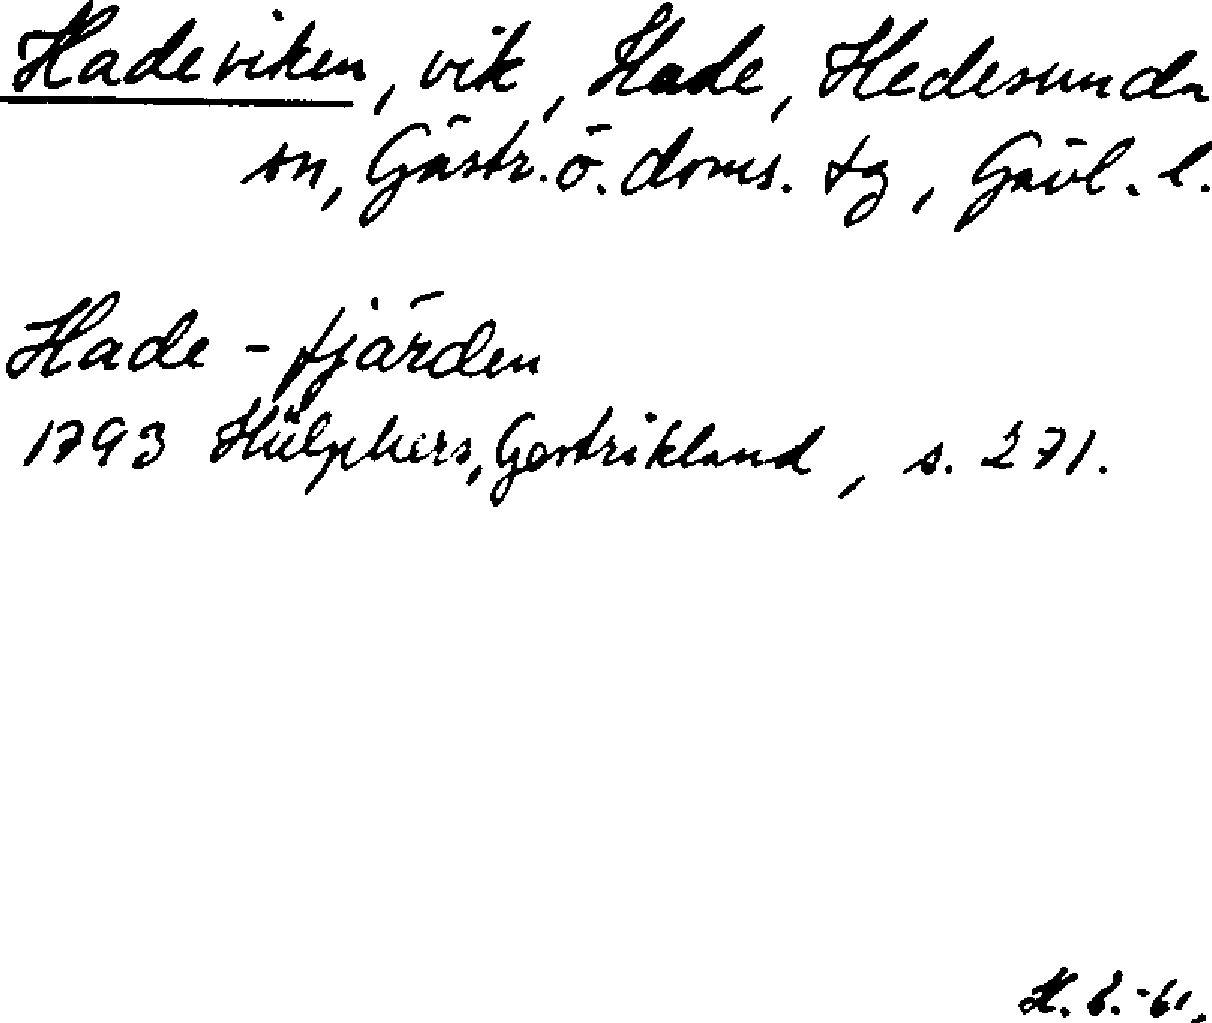 Hadeviken, vik, Hade, Hedesunda
sn, Gästr. ö. doms. tg, Gävl. l.
Hade-fjärden
1793 Hülphers, Gestrikland, s. 271.